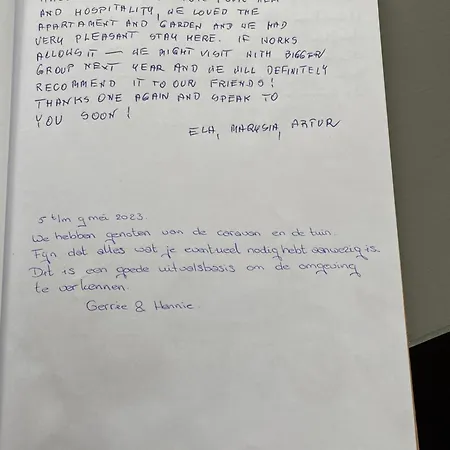 AND HOSPITALITY, WE LOVED THE
APARTAMENT AND GARDEN AND WE HAD
VERY PLEASANT STAY HERE. IF WORKS
ALLOWS IT — WE MIGHT VISIT WITH BIGGER
GROUP NEXT YEAR AND WE WILL DEFINITELY
RECOMMEND IT TO OUR FRIENDS!
THANKS ONE AGAIN AND SPEAK TO
YOU SOON!
ELA, MARYSIA, ARTUR
5 t/m 9 mei 2023.
We hebben genoten van de caravan en de tuin.
Fijn dat alles wat je eventueel nodig hebt aanwezig is.
Dit is een goede uitvalsbasis om de omgeving
te verkennen.
Gerrie & Hennie.